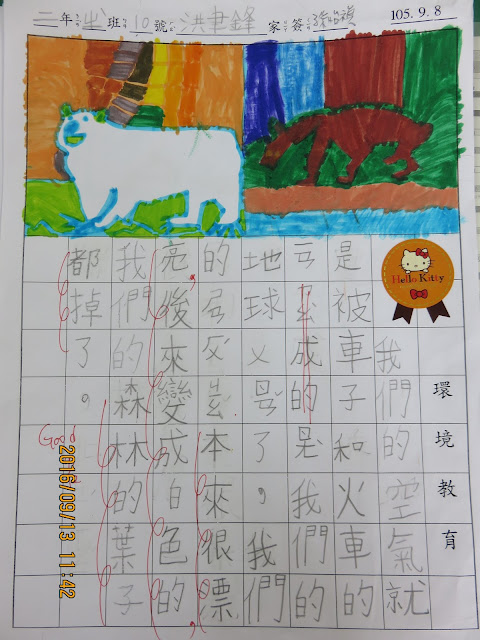 三年班10號洪聿鋒 家簽 105.9.8
環境教育
Hello Kitty
我們的空氣就
是被車子和火車的
成的是我們的
地球ㄨ了，我們
的本來很漂
亮後來變成白色的
我們的森林的葉子
都掉了。
Good
2016/09/13 11:42